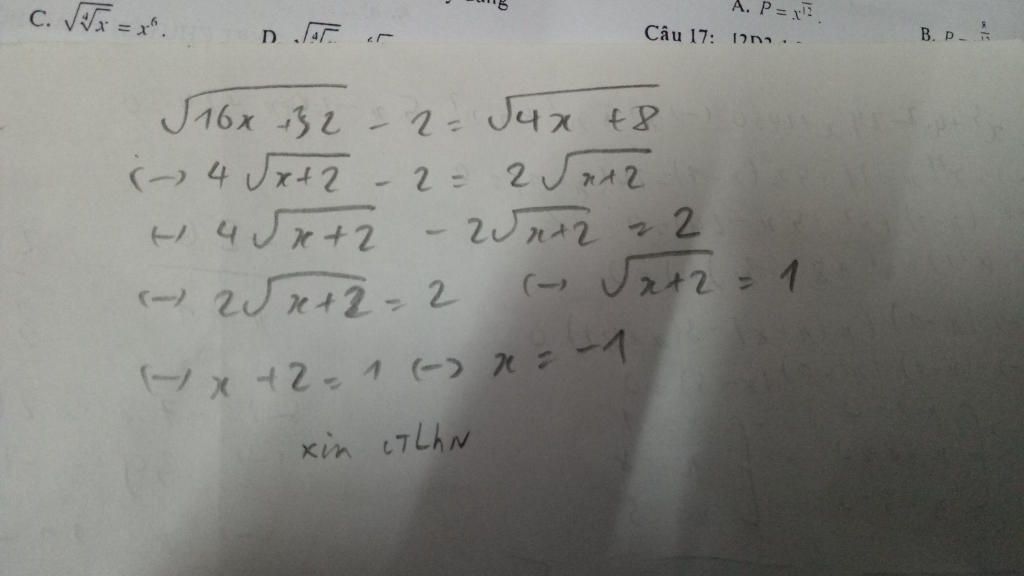 C. √∜x = x⁶.
A. P = x
D.
Câu 17:
B. P
√16x +32 - 2 = √4x +8
(-) 4√x+2 - 2 = 2√x+2
(-) 4√x+2 - 2√x+2 = 2
(-) 2√x+2 = 2 (-) √x+2 = 1
(-) x +2 = 1 (-) x = -1
xin CTLhN